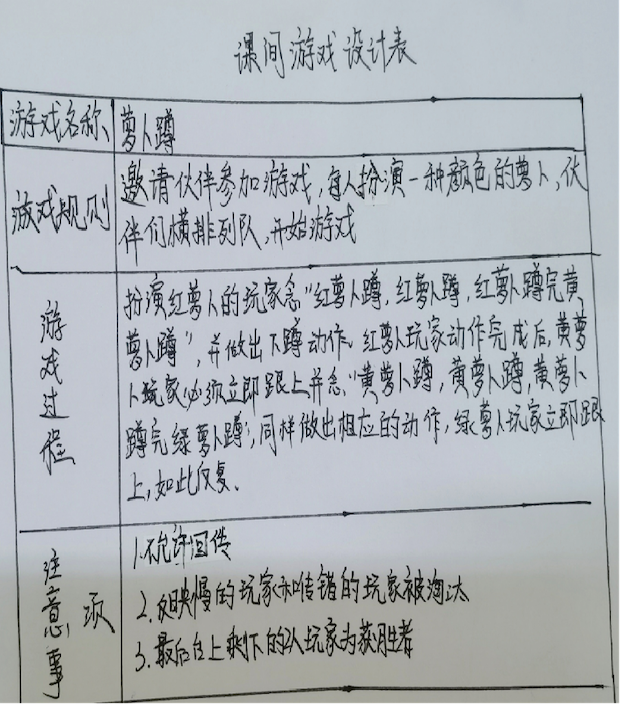 课间游戏设计表
游戏名称
萝卜蹲
游戏规则
邀请伙伴参加游戏,每人扮演一种颜色的萝卜,伙
伴们横排列队,开始游戏
游戏过程
扮演红萝卜的玩家念“红萝卜蹲,红萝卜蹲,红萝卜蹲完黄
萝卜蹲”,并做出下蹲动作。红萝卜玩家动作完成后,黄萝
卜玩家必须立即跟上并念“黄萝卜蹲,黄萝卜蹲,黄萝卜
蹲完绿萝卜蹲”,同样做出相应的动作,绿萝卜玩家立即跟
上,如此反复。
注意事项
1.不允许回传
2.反映慢的玩家和传错的玩家被淘汰
3.最后台上剩下的2人玩家为获胜者